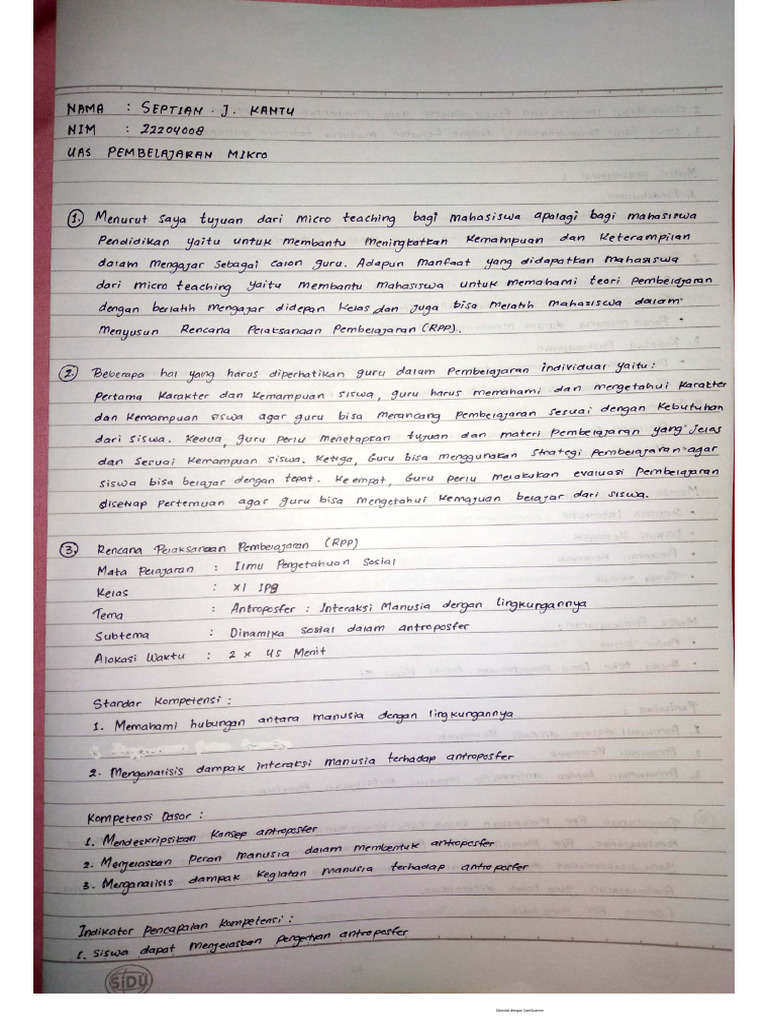 NAMA : SEPTIAN . J. KANTU
NIM : 22204008
UAS PEMBELAJARAN MIKRO
1. Menurut saya tujuan dari micro teaching bagi mahasiswa apalagi bagi mahasiswa
Pendidikan yaitu untuk membantu meningkatkan kemampuan dan keterampilan
dalam mengajar sebagai calon guru. Adapun manfaat yang didapatkan mahasiswa
dari micro teaching yaitu membantu mahasiswa untuk memahami teori pembelajaran
dengan berlatih mengajar didepan kelas dan juga bisa melatih mahasiswa dalam
menyusun Rencana Pelaksanaan Pembelajaran (RPP).
2. Beberapa hal yang harus diperhatikan guru dalam pembelajaran individual yaitu:
Pertama karakter dan kemampuan siswa, guru harus memahami dan mengetahui karakter
dan kemampuan siswa agar guru bisa merancang pembelajaran sesuai dengan kebutuhan
dari siswa. Kedua, guru perlu menetapkan tujuan dan materi pembelajaran yang jelas
dan sesuai kemampuan siswa. Ketiga, Guru bisa menggunakan strategi pembelajaran agar
siswa bisa belajar dengan tepat. Ke empat, Guru perlu melakukan evaluasi Pembelajaran
disetiap pertemuan agar guru bisa mengetahui kemajuan belajar dari siswa.
3. Rencana Pelaksanaan Pembelajaran (RPP)
Mata Pelajaran : Ilmu Pengetahuan Sosial
Kelas : XI IPS
Tema : Antroposfer : Interaksi Manusia dengan lingkungannya
Subtema : Dinamika sosial dalam antroposfer
Alokasi Waktu : 2 x 45 Menit
Standar Kompetensi :
1. Memahami hubungan antara manusia dengan lingkungannya
2. Menganalisis dampak interaksi manusia terhadap antroposfer
Kompetensi Dasar :
1. Mendeskripsikan konsep antroposfer
2. Menjelaskan peran manusia dalam membentuk antroposfer
3. Menganalisis dampak kegiatan manusia terhadap antroposfer
Indikator Pencapaian Kompetensi :
1. Siswa dapat menjelaskan pengertian antroposfer
SIDU
Dipindai dengan CamScanner